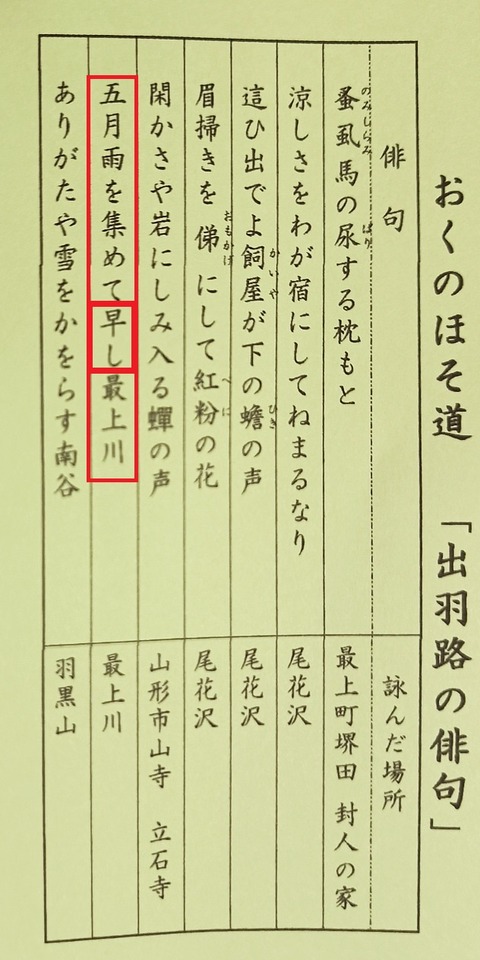 おくのほそ道　「出羽路の俳句」
俳句　詠んだ場所
蚤虱馬の尿する枕もと　最上町堺田　封人の家
のみしらみ　ばり
涼しさをわが宿にしてねまるなり　尾花沢
這ひ出でよ飼屋が下の蟾の声　尾花沢
かいや　ひき
眉掃きを俤にして紅粉の花　尾花沢
おもかげ　べに
閑かさや岩にしみ入る蟬の声　山形市山寺　立石寺
五月雨を集めて早し最上川　最上川
ありがたや雪をかをらす南谷　羽黒山